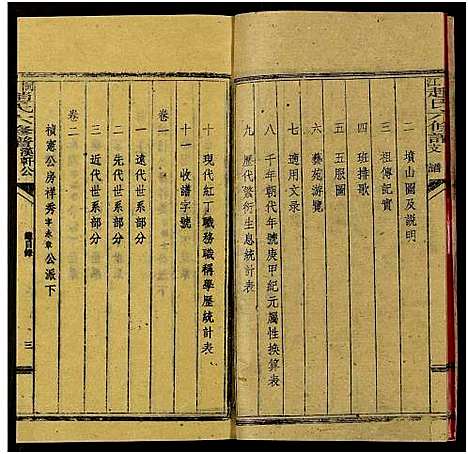 江趙氏六修譜
文譜
二 墳山圖及說明
三 祖傳記實
四 班捲歌
五 五服圖
六 藝苑游覽
七 適用文录
八 千年朝代年號庚甲紀元屬性換算表
九 歷代繁衍生息統計表
十 現代紅丁職務職稱學歷統計表
十一 收譜字號
卷一
一 遠代世系部分
二 先代世系部分
三 近代世系部分
卷二
禎憲公房祥秀公派下
趙氏六修譜漢軒公
總目錄
三